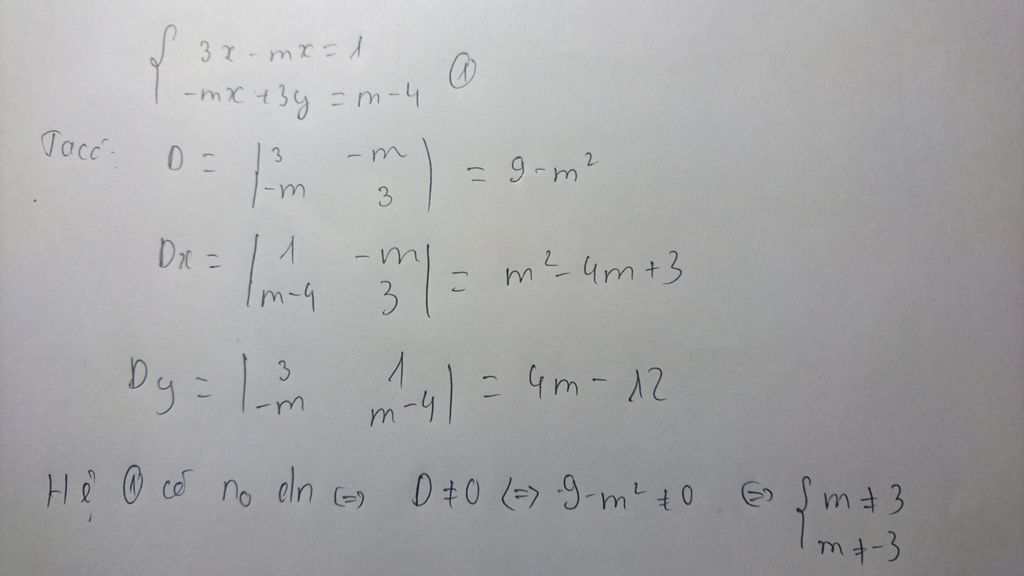 { 3x - mx = 1
-mx + 3y = m - 4 ①
Ta có: D = | 3 -m |
| -m 3 | = 9 - m²
Dx = | 1 -m |
| m-4 3 | = m² - 4m + 3
Dy = | 3 1 |
| -m m-4 | = 4m - 12
Hệ ① có no dn ⇔ D ≠ 0 ⇔ 9 - m² ≠ 0 ⇔ { m ≠ 3
m ≠ -3